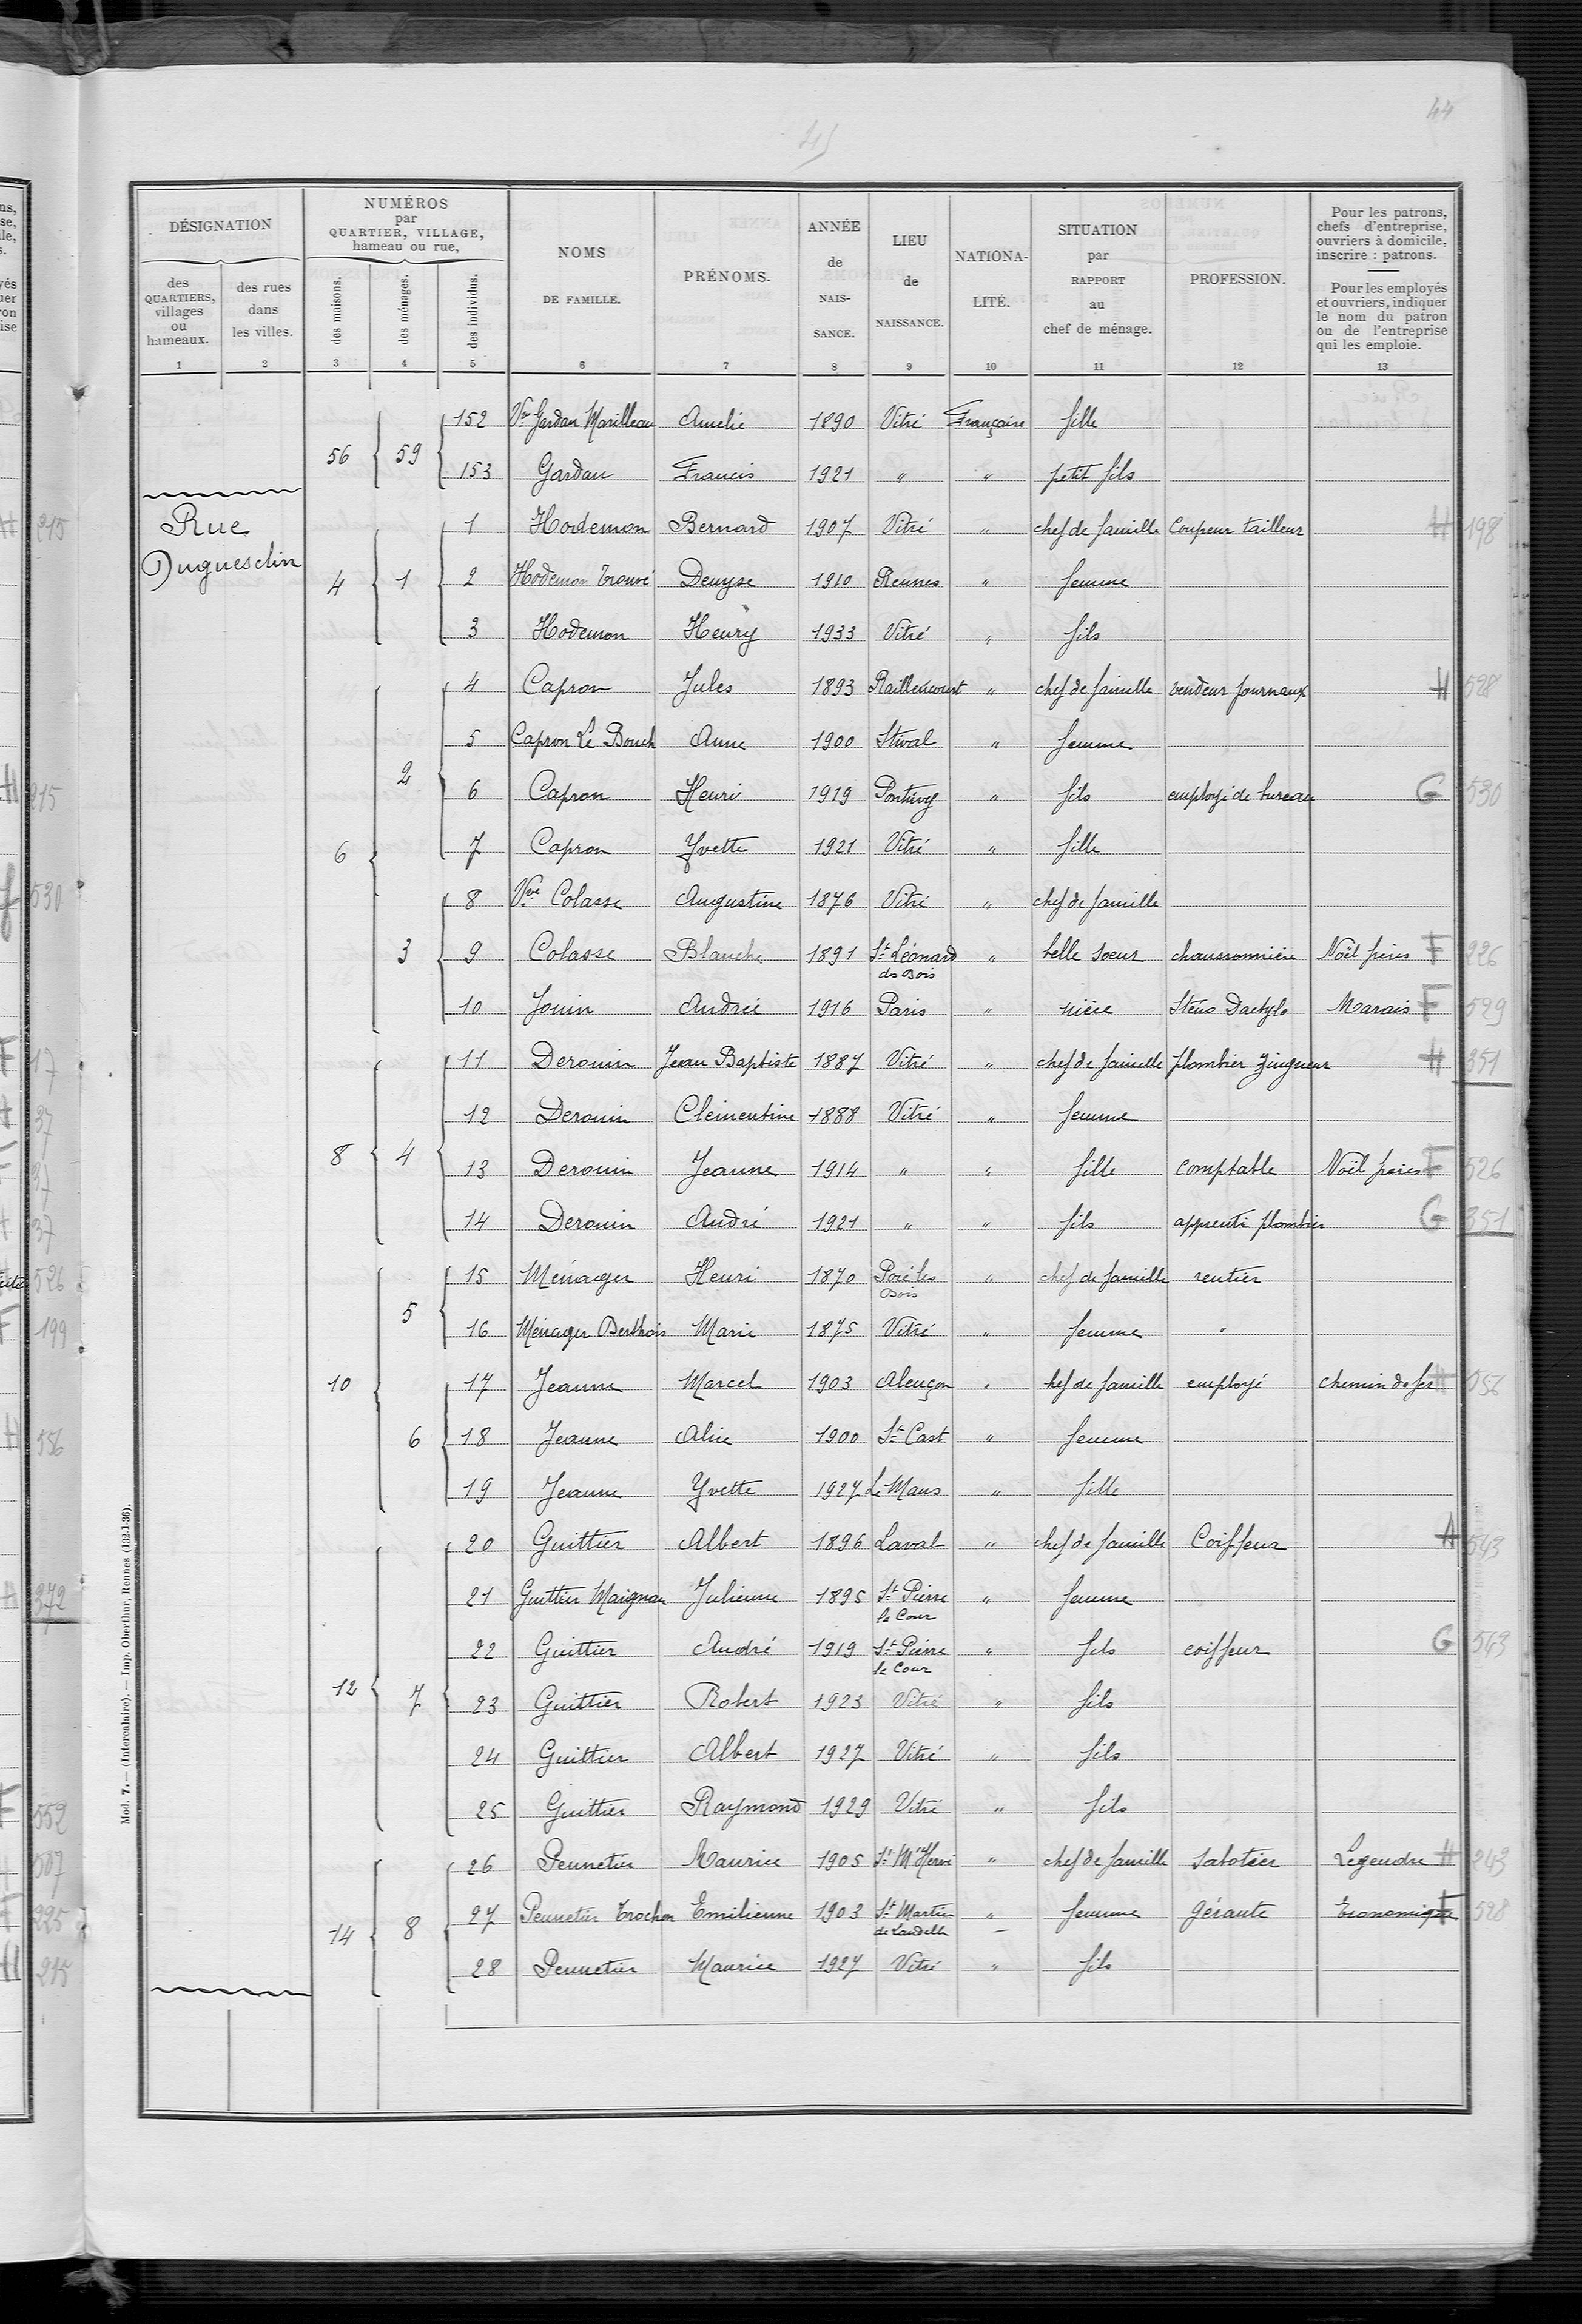 44
45
DÉSIGNATION
des QUARTIERS, villages ou hameaux.
des rues dans les villes.
NUMÉROS par QUARTIER, VILLAGE, hameau ou rue,
des maisons.
des ménages.
des individus.
NOMS DE FAMILLE.
PRÉNOMS.
ANNÉE de NAIS-SANCE.
LIEU de NAISSANCE.
NATIONA-LITÉ.
SITUATION par RAPPORT au chef de ménage.
PROFESSION.
Pour les patrons, chefs d'entreprise, ouvriers à domicile, inscrire : patrons.
Pour les employés et ouvriers, indiquer le nom du patron ou de l'entreprise qui les emploie.
1 2 3 4 5 6 7 8 9 10 11 12 13
56 59 152 Vve Gardan Marilleau Amélie 1890 Vitré Française fille
153 Gardan Francis 1921 " " petit fils
Rue Duguesclin
4 1 1 Hodemon Bernard 1907 Vitré " chef de famille Coupeur tailleur H 198
2 Hodemon Trouvé Denyse 1910 Rennes " femme
3 Hodemon Henry 1933 Vitré " fils
6 2 4 Capron Jules 1893 Raillencourt " chef de famille vendeur journaux H 528
5 Capron Le Bouch Anne 1900 Stival " femme
6 Capron Henri 1919 Pontivy " fils employé de bureau G 530
7 Capron Yvette 1921 Vitré " fille
3 8 Vve Colasse Augustine 1876 Vitré " chef de famille
9 Colasse Blanche 1891 St Léonard des Bois " belle soeur chaussonnière Noël frères F 226
10 Jouin Andrée 1916 Paris " nièce Sténo Dactylo Marais F 529
8 4 11 Derouin Jean Baptiste 1887 Vitré " chef de famille plombier zingueur H 351
12 Derouin Clémentine 1888 Vitré " femme
13 Derouin Jeanne 1914 " " fille comptable Noël frères F 526
14 Derouin André 1921 " " fils apprenti plombier G 351
10 5 15 Ménager Henri 1870 Bois " chef de famille rentier
16 Ménager Berthois Marie 1875 Vitré " femme "
6 17 Jeanne Marcel 1903 Alençon " hef de famille employé chemin de fer H 556
18 Jeanne Alice 1900 St Cast " femme
19 Jeanne Yvette 1927 Le Mans " fille
12 7 20 Guittier Albert 1896 Laval " chef de famille Coiffeur H 543
21 Guittier Maignan Julienne 1895 St Pierre la Cour " femme
22 Guittier André 1919 St Pierre la Cour " fils coiffeur G 543
23 Guittier Robert 1923 Vitré " fils
24 Guittier Albert 1927 Vitré " fils
25 Guittier Raymond 1929 Vitré " fils
14 8 26 Pennetier Maurice 1905 St M'Hervé " chef de famille Sabotier Legendre H 243
27 Pennetier Trochon Emilienne 1903 St Martin de Landelle " femme Gérante Economique F 528
28 Pennetier Maurice 1927 Vitré " fils
Mod. 7. — (Intercalaire). — Imp. Oberthur, Rennes (132-1-36).